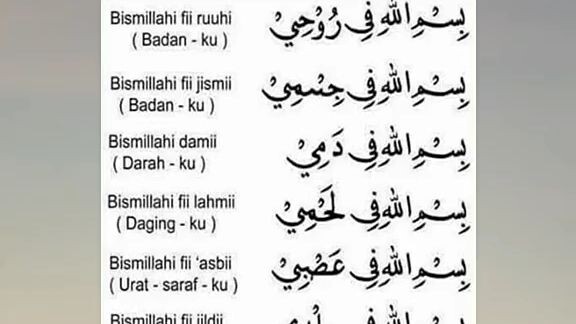 Bismillahi fii ruuhi
( Badan - ku )
بِسْمِ اللهِ فِى رُوْحِيْ
Bismillahi fii jismii
( Badan - ku )
بِسْمِ اللهِ فِى جِسْمِيْ
Bismillahi damii
( Darah - ku )
بِسْمِ اللهِ فِى دَمِيْ
Bismillahi fii lahmii
( Daging - ku )
بِسْمِ اللهِ فِى لَحْمِيْ
Bismillahi fii ‘asbii
( Urat - saraf - ku )
بِسْمِ اللهِ فِى عَصْبِيْ
Bismillahi fii jildii